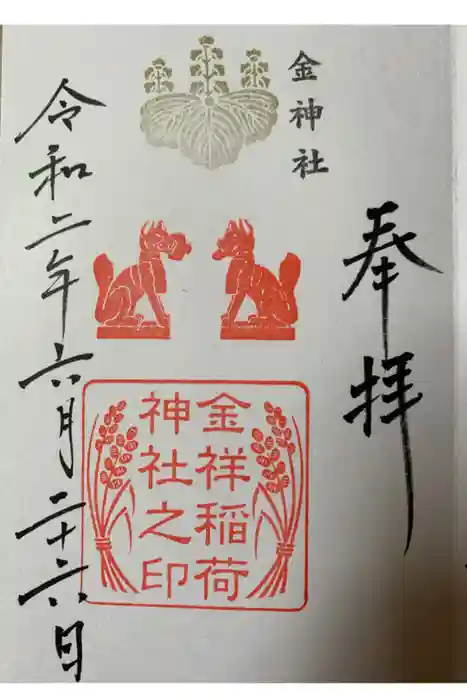 奉拝
金神社
金祥稲荷
神社之印
令和二年六月二十六日